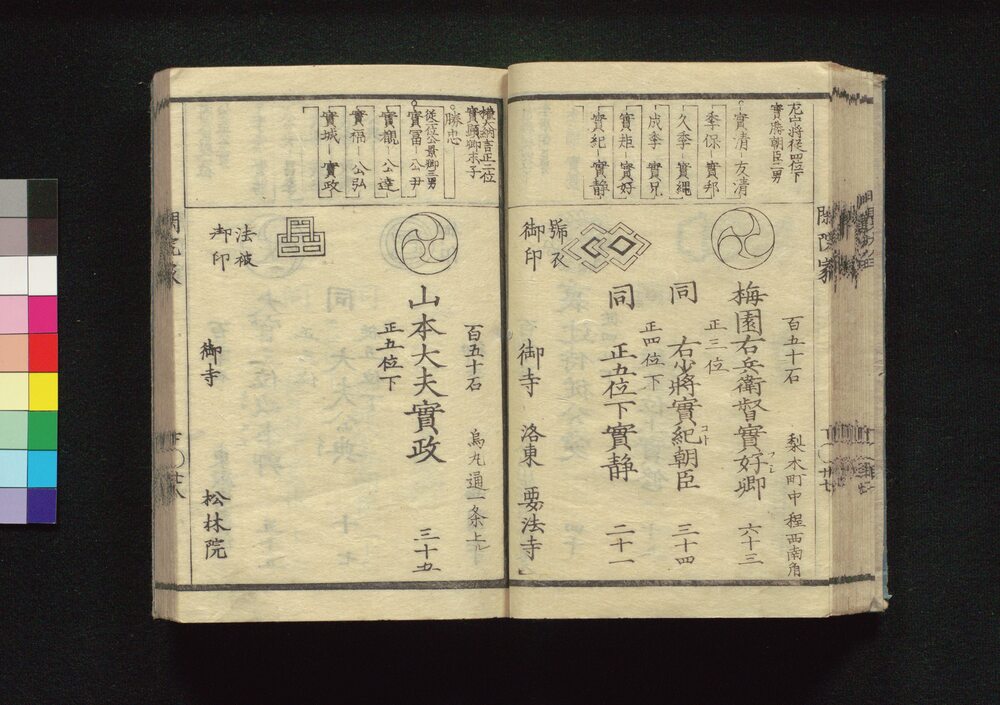 左中将従四位下
實勝朝臣二男
實清 友清
季保 實邦
久季 實縄
成季 實兄
實矩 實好
實紀 實静
百五十石 梨木町中程西南角
梅園右兵衛督實好卿 六十三
正三位
同 右少將實紀朝臣 三十四
正四位下
同 正五位下實静 二十一
號衣
御印
御寺 洛東 要法寺
閑院家
權大納言正二位
實顕卿末子
勝忠
従二位公景卿二男
實冨 公尹
實覩 公達
實福 公弘
實城 實政
百五十石 烏丸通一条上ル
山本大夫實政 三十五
正五位下
法被
御印
御寺 松林院
閑院家